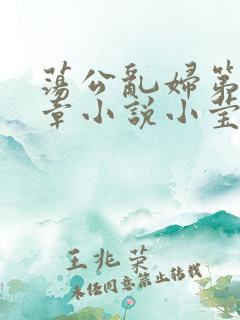 荡公乱妇第
章小说小莹
王兆荣
未经同意禁止转载